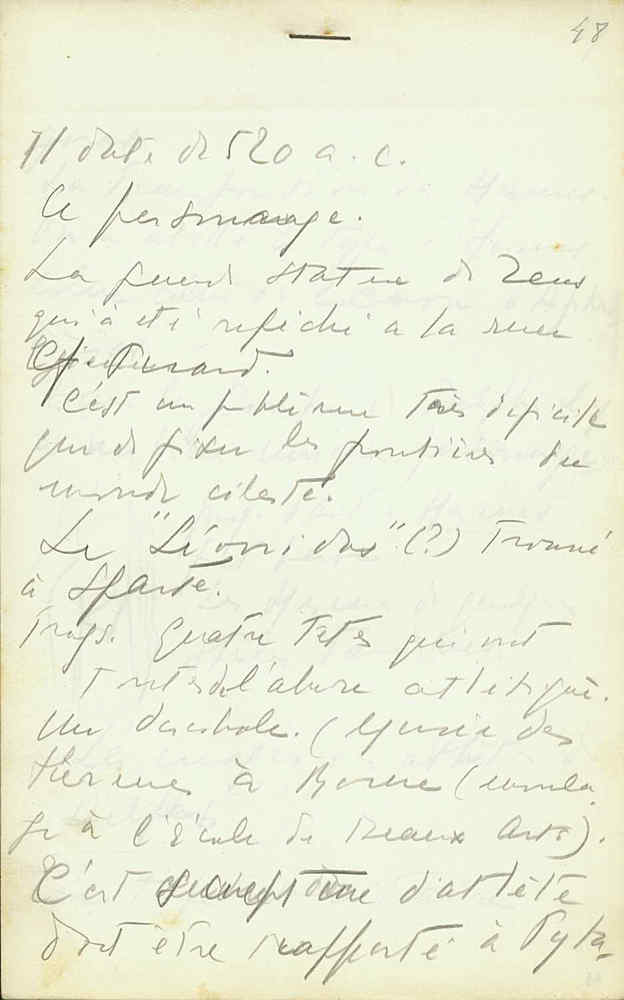 48
Il date de 520 a. c.
Ce personnage.
La grande statue de Zeus
qui a été repéché a la mer
Cf Picard.
C'est un problème très dificile
que de fixer les frontières du
monde céleste.
Le "Léonidas" (?) Trouvé
à Sparte.
Frags. Quatre Têtes qui ont
Toutes de l'alure atlétique.
Un discobole. (Musée des
Thermes à Rome (moula
ge à l'École de Beaux Arts).
C'est sculpture d'atlète
doit être rapporté à Pyta-